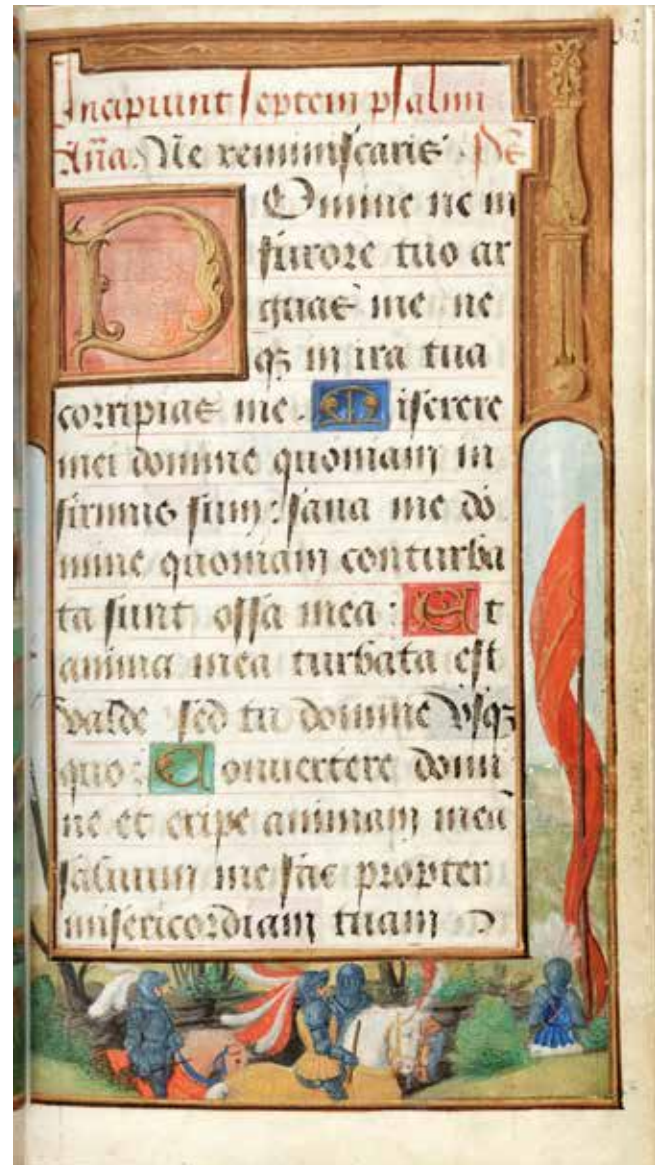 Incipiunt septem psalmi
Añа. Ne reminiscaris Ps
Domine ne in
furore tuo ar
guas me ne
qꝫ in ira tua
corripias me. Miserere
mei domine quoniam in
firmus sum: sana me do
mine quoniam conturba
ta sunt ossa mea: Et
anima mea turbata est
valde sed tu domine vsqꝫ
quo: Conuertere domi
ne et eripe animam meā
saluum me fac propter
misericordiam tuam